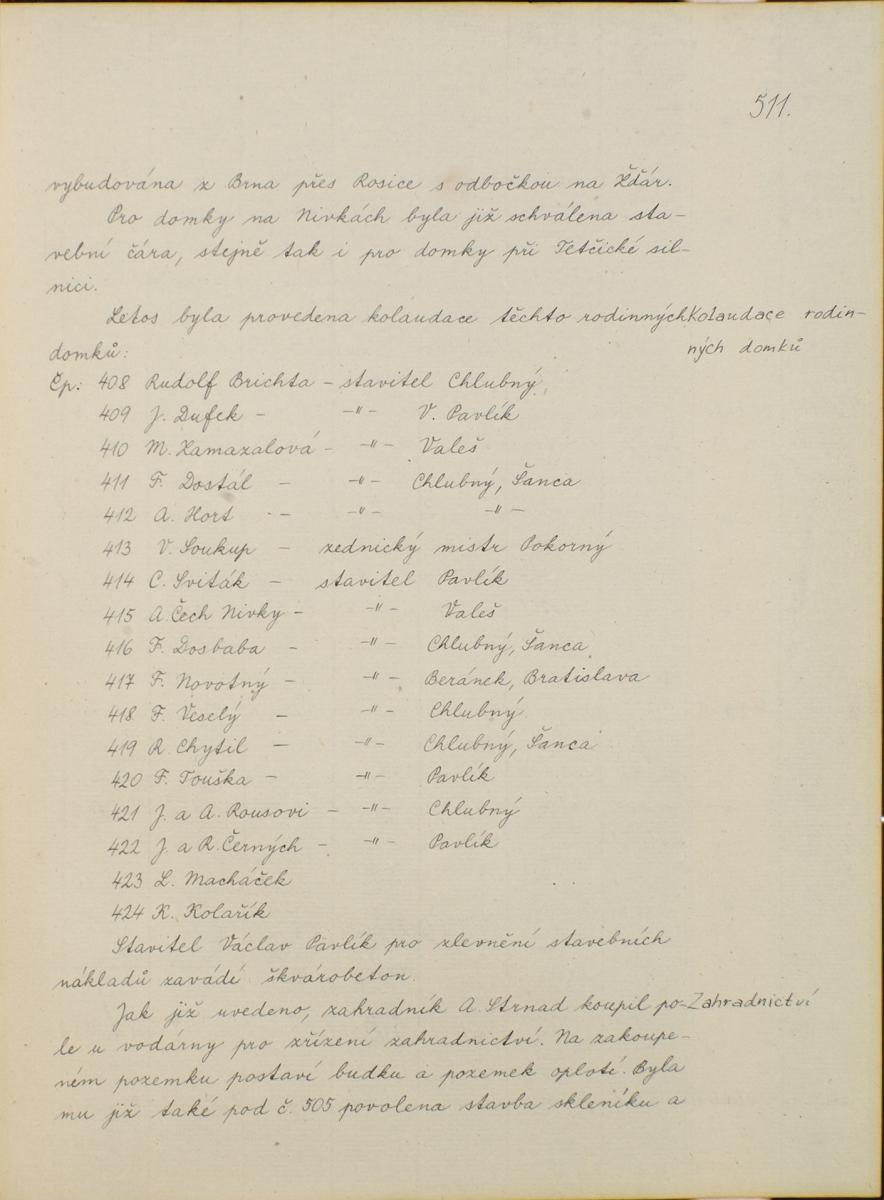 511.
vybudována z Brna přes Rosice s odbočkou na Žďár.
Pro domky na Nivkách byla již schválena sta-
vební čára, stejně tak i pro domky při Tetčické sil-
nici.
Letos byla provedena kolaudace těchto rodinných
Kolaudace rodin-
domků:
ných domků
Čp: 408 Rudolf Brichta - stavitel Chlubný,
409 J. Dufek - -"- V. Pavlík
410 M. Zamazalová - -"- Valeš
411 F. Dostál - -"- Chlubný, Šanca
412 A. Hort - -"- -"-
413 V. Soukup - zednický mistr Pokorný
414 C. Sviták - stavitel Pavlík
415 A. Čech Nivky - -"- Valeš
416 F. Dosbaba - -"- Chlubný, Šanca
417 F. Novotný - -"- Beránek, Bratislava
418 F. Veselý - -"- Chlubný
419 R. Chytil - -"- Chlubný, Šanca
420 F. Touška - -"- Pavlík
421 J. a A. Rousovi - -"- Chlubný
422 J. a R. Černých - -"- Pavlík
423 L. Macháček
424 K. Kolařík
Stavitel Václav Pavlík pro zlevnění stavebních
nákladů zavádí škvárobeton.
Jak již uvedeno, zahradník A. Strnad koupil po-
Zahradnictví
le u vodárny pro zřízení zahradnictví. Na zakoupe-
ném pozemku postaví budku a pozemek oplotí. Byla
mu již také pod č. 505 povolena stavba skleníku a